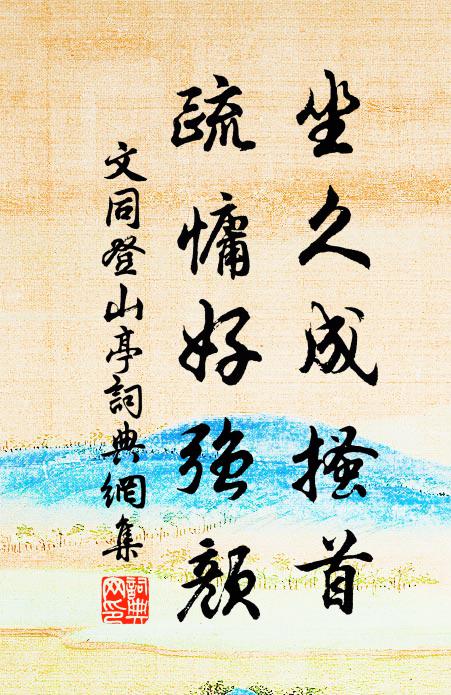 坐久成搔首
疏慵好強顏
文同登山亭詞典網集